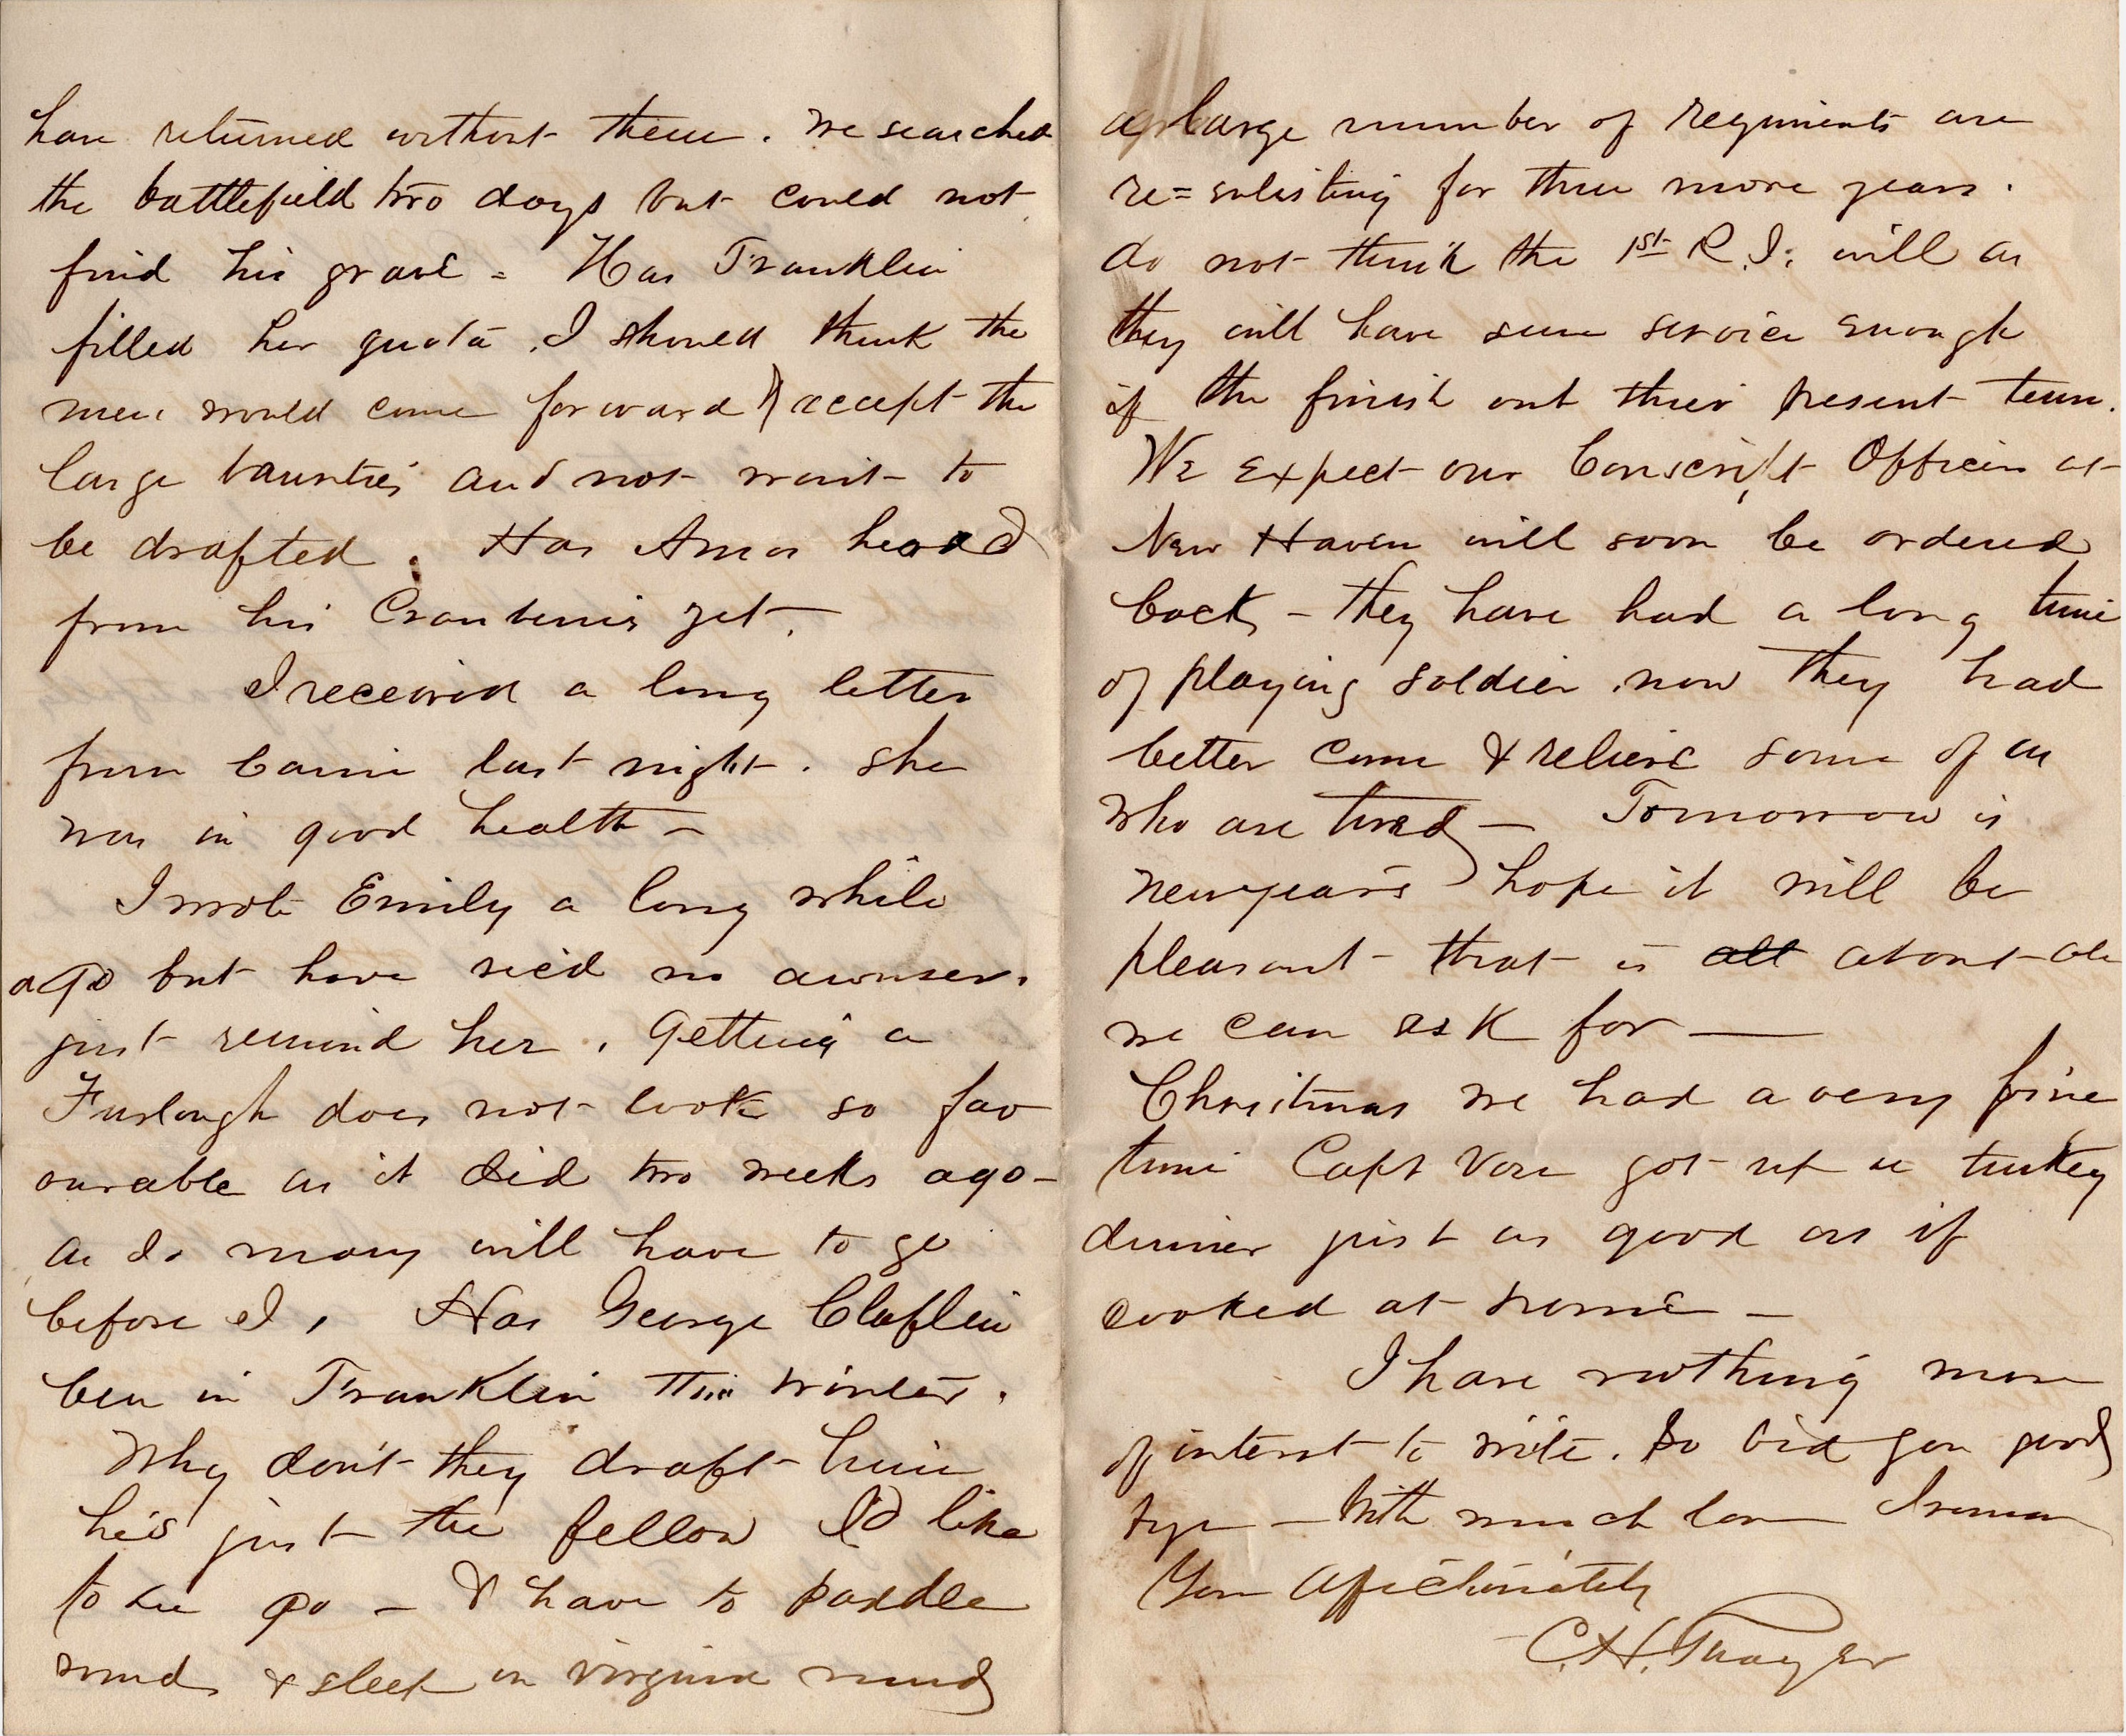 have returned without them. We searched
the battlefield two days but could not
find his grave - Has Franklin
filled her quota. I should think the
men would come forward & accept the
large bounties and not wait to
be drafted. Has Amos heard
from his Cranberries yet.
I received a long letter
from Carrie last night. She
was in good health -
I wrote Emily a long while
ago but have rec'd no awnser.
just remind her. Getting a
Furlough does not look so fav
ourable as it did two weeks ago -
as so many will have to go
before I. Has George Claflin
ben in Franklin this winter.
Why don't they draft him
he's just the fellow I'd like
to see go - & have to paddle
round & sleep in Virginia mud
a large number of regiments are
re=enlisting for three more years.
do not think the 1st R.I. will as
they will have seen service enough
if the finish out thier present term.
We expect our Conscript Officers at
New Haven will soon be ordered
back - they have had a long time
of playing soldier now they had
better come & relieve some of us
who are tired - Tomorrow is
newyears hope it will be
pleasant - that is all about all
we can ask for —
Christmas we had a very fine
time Capt Vose got up a turkey
dinner just as good as if
cooked at home -
I have nothing more
of interest to write. So bid you good
bye - With much love I remain
Your Affectionately
C. H. Thayer